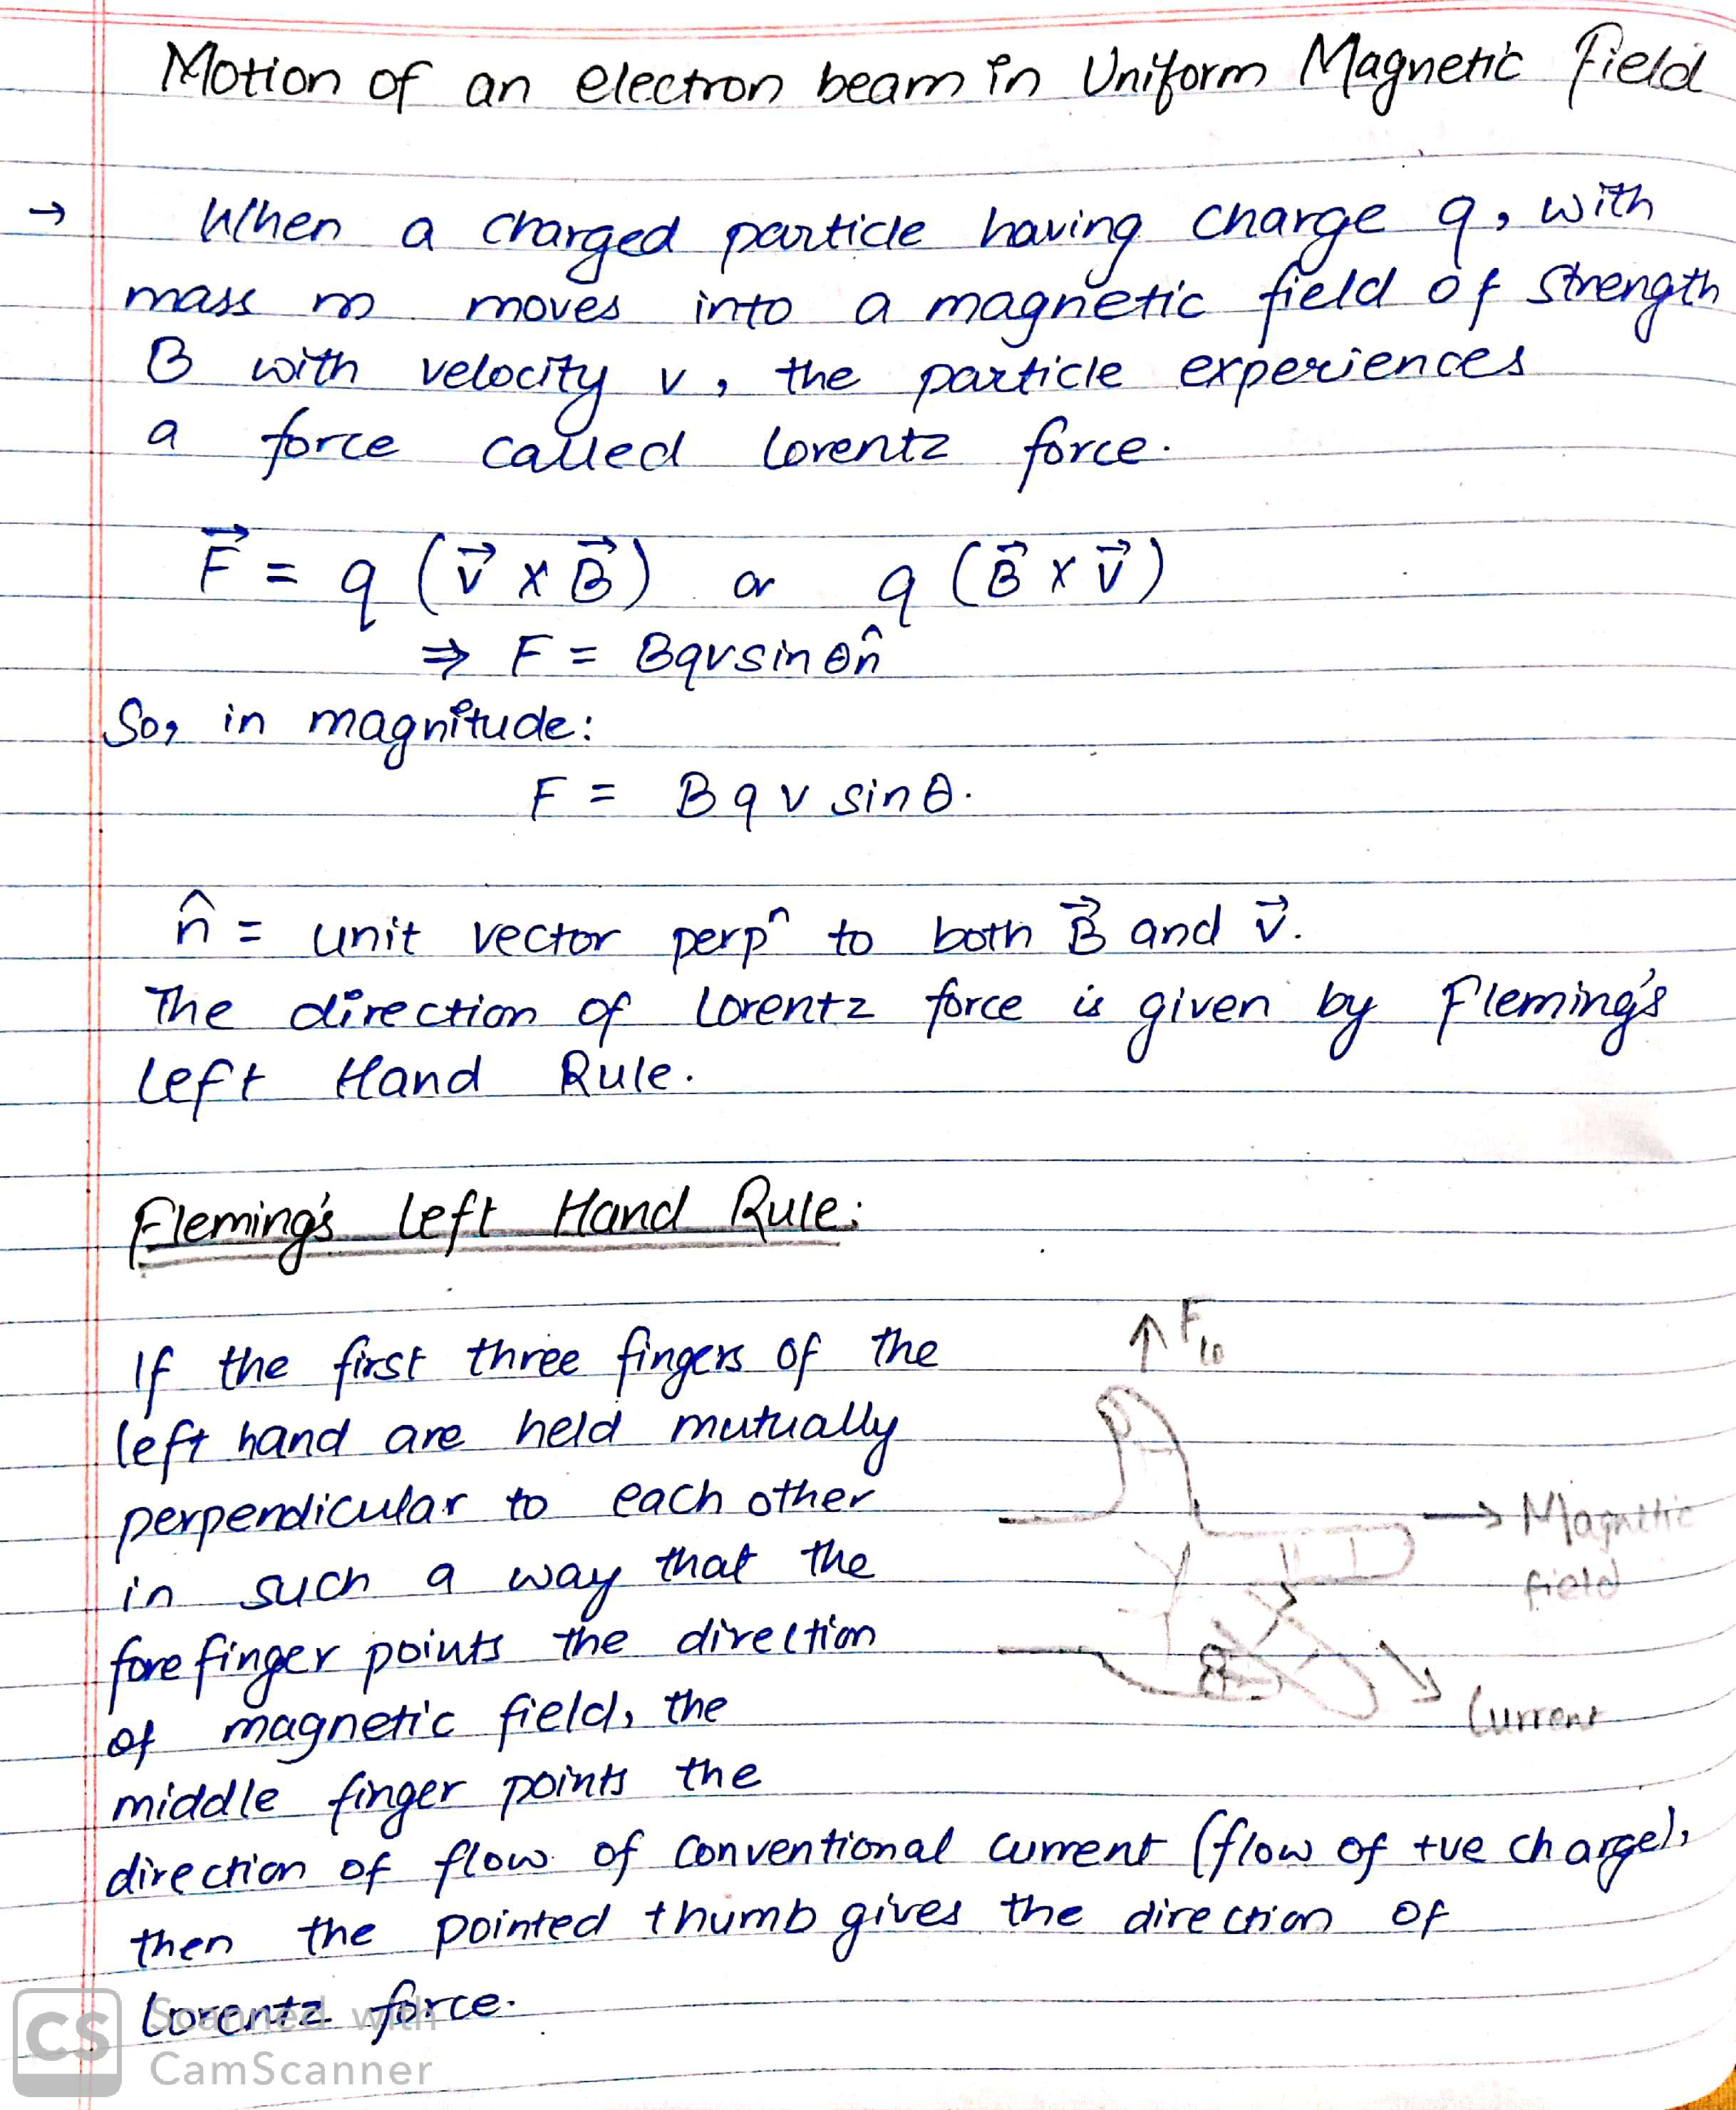 Motion of an electron beam in Uniform Magnetic field
→ When a charged particle having charge q, with
mass m moves into a magnetic field of strength
B with velocity v, the particle experiences
a force called Lorentz force.
F⃗ = q (v⃗ × B⃗) or q (B⃗ × v⃗)
⇒ F = Bqvsinθn̂
So, in magnitude:
F = Bqv sinθ.
n̂ = unit vector perpⁿ to both B⃗ and v⃗.
The direction of Lorentz force is given by Fleming's
Left Hand Rule.
Fleming's Left Hand Rule:
If the first three fingers of the
left hand are held mutually
perpendicular to each other
in such a way that the
fore finger points the direction
of magnetic field, the
middle finger points the
direction of flow of conventional current (flow of +ve charge),
then the pointed thumb gives the direction of
Lorentz force.
↑ F
→ Magnetic
field
Current
CS Scanned with
CamScanner